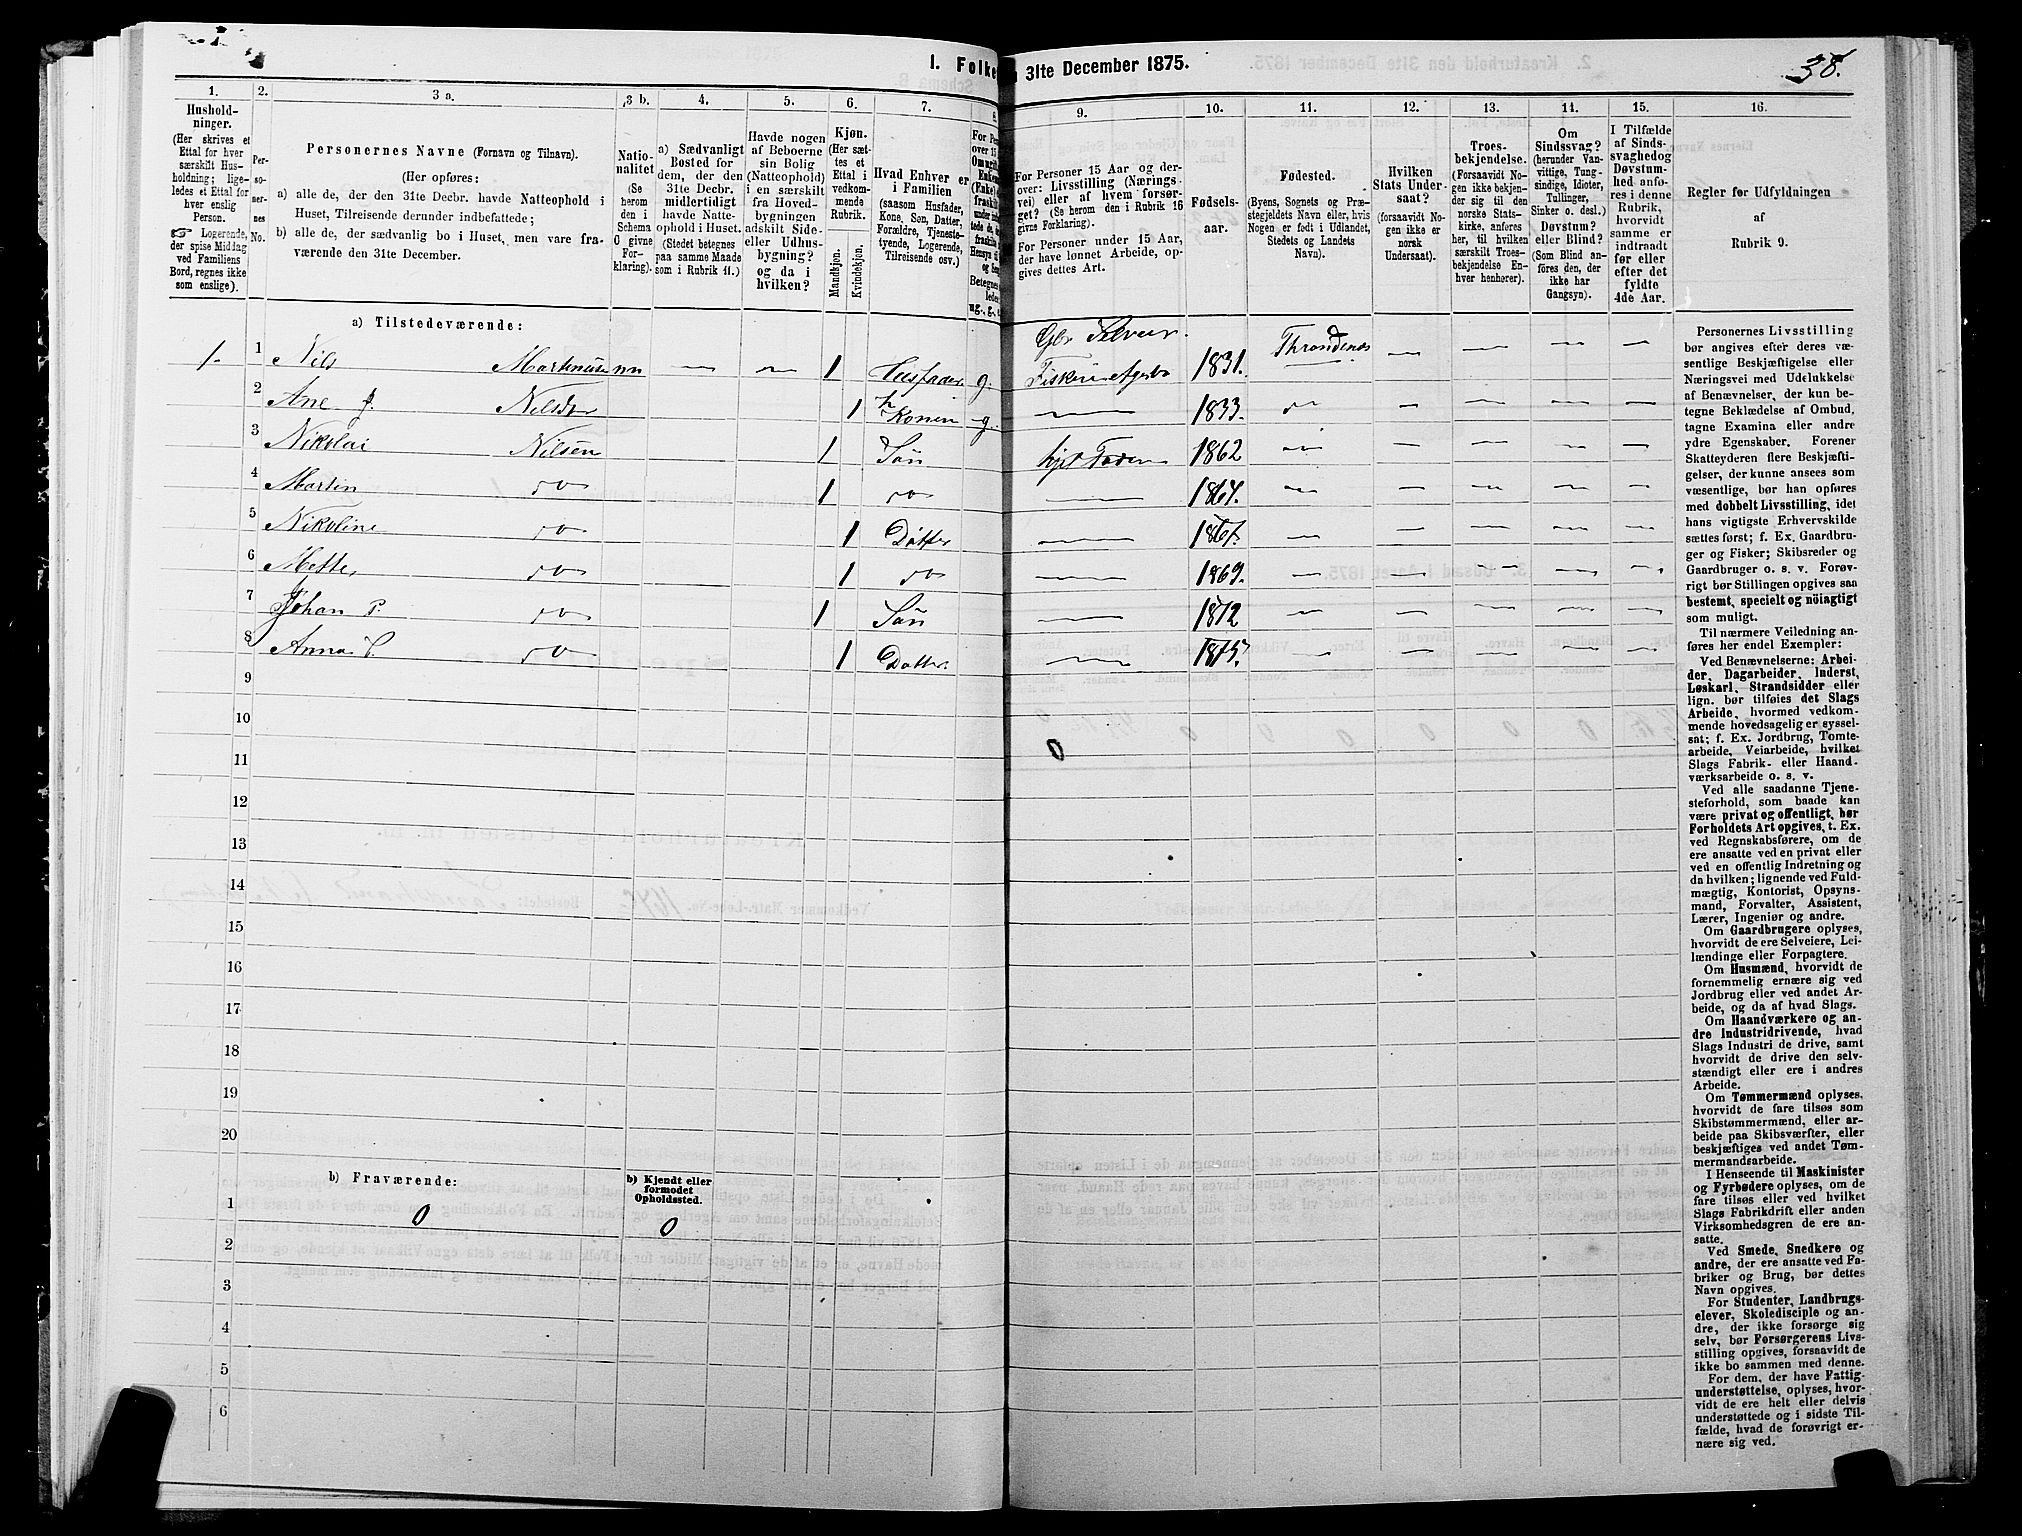 1. Folke
31te December 1875.
38.
1.
Hushold-
ninger.
(Her skrives et
Ettal for hver
særskilt Hus-
holdning; lige-
ledes et Ettal for
hver enslig
Person.
☞ Logerende,
der spise Middag
ved Familiens
Bord, regnes ikke
som enslige).
2.
Per-
so-
ner-
nes
No.
3 a.
Personernes Navne (Fornavn og Tilnavn).
(Her opføres:
a) alle de, der den 31te Decbr. havde Natteophold i
Huset, Tilreisende derunder indbefattede;
b) alle de, der sædvanlig bo i Huset, men vare fra-
værende den 31te December.
3 b.
Natio-
nalitet
(Se
herom
den i
Schema
O givne
For-
klaring).
4.
a) Sædvanligt
Bosted for
dem, der den
31te Decbr.
midlertidigt
havde Natte-
ophold i Huset.
(Stedet betegnes
paa samme Maade
som i Rubrik 11.)
5.
Havde nogen
af Beboerne
sin Bolig
(Natteophold)
i en særskilt
fra Hoved-
bygningen
adskilt Side-
eller Udhus-
bygning?
og da i
hvilken?
6.
Kjøn.
(Her sæt-
tes et
Ettal i
vedkom-
mende
Rubrik.
Mandkjøn.
Kvindekjøn.
7.
Hvad Enhver er
i Familien
(saasom Husfader,
Kone, Søn, Datter,
Forældre, Tjeneste-
tyende, Logerende,
Tilreisende osv.)
8.
For Per
over 15
Om ugift
Enkem
(Enke)
fraskilt
under
tede de,
fraskilt
Hensyn til
og Seng
Betegnes
ledes
ug., g., e
9.
For Personer 15 Aar og der-
over: Livsstilling (Nærings-
vei) eller af hvem forsør-
get? (Se herom den i Rubrik 16
givne Forklaring).
For Personer under 15 Aar,
der have lønnet Arbeide, op-
gives dettes Art.
10.
Fødsels-
aar.
11.
Fødested.
(Byens, Sognets og Præ-
stegjeldets Navn eller, hvis
Nogen er født i Udlandet,
Stedets og Landets
Navn).
12.
Hvilken
Stats Under-
saat?
(forsaavidt No-
gen ikke er
norsk
Undersaat).
13.
Troes-
bekjendelse.
(Forsaavidt No-
gen ikke bekjen-
der sig til den
norske Stats-
kirke, anføres
her, til hvilken
særskilt Troes-
bekjendelse En-
hver henhører).
14.
Om
Sindssvag?
(herunder Van-
vittige, Tung-
sindige, Idioter,
Tullinger,
Sinker o. desl.)
Døvstum?
eller Blind?
(Som Blind an-
føres den, der
ikke har
Gangsyn).
15.
I Tilfælde
af Sinds-
svaghed og
Døvstum-
hed anfø-
res i denne
Rubrik,
hvorvidt
samme er
indtraadt
før eller
efter det
fyldte
4de Aar.
16.
Regler før Udfyldningen
af
Rubrik 9.
a) Tilstedeværende:
1 1 Nils Martinusen n 1 Husfader g. Gbr Selveier. Fiskeri 1831. Throndenes
2 Ane J. Nilsdtr 1 Konen g. 1833.
3 Nikolai Nilsen 1 Søn hjpl Faderen 1862
4 Martin do 1 do 1864.
5 Nikoline do 1 Datter 1867.
6 Mette do 1 do 1869.
7 Johan P. do 1 Søn 1872
8 Anna do 1 Datter 1875.
9
10
11 0
12
13
14
15
16
17
18
19
20
b) Fraværende:
b) Kjendt eller
formodet
Opholdssted.
1 0 0
2
3
4
5
6
Personernes Livsstilling
bør angives efter deres væ-
sentlige Beskjæftigelse eller
Næringsvei med Udelukkelse
af Benævnelser, der kun be-
tegne Beklædelse af Ombud,
tagne Examina eller andre
ydre Egenskaber. Forener
Skatteyderen flere Beskjæfti-
gelser, der kunne ansees som
væsentlige, bør han opføres
med dobbelt Livsstilling, idet
hans vigtigste Erhvervskilde
sættes først; f. Ex. Gaardbru-
ger og Fisker; Skibsreder og
Gaardbruger o. s. v. Forøv-
rigt bør Stillingen opgives saa
bestemt, specielt og nöiagtigt
som muligt.
Til nærmere Veiledning an-
føres her endel Exempler:
Ved Benævnelserne: Arbei-
der, Dagarbeider, Inderst,
Løskarl, Strandsidder eller
lign. bør tilføies det Slags
Arbeide, hvormed vedkom-
mende hovedsagelig er syssel-
sat; f. Ex. Jordbrug, Tomte-
arbeide, Veiarbeide, hvilket
Slags Fabrik- eller Haand-
værksarbeide o. s. v.
Ved alle saadanne Tjene-
steforhold, som baade kan
være privat og offentligt, bør
Forholdets Art opgives, t. Ex.
ved Regnskabsførere, om de
ere ansatte ved en privat eller
ved en offentlig Indretning og
da hvilken; lignende ved Fuld-
mægtig, Kontorist, Opsyns-
mand, Forvalter, Assistent,
Lærer, Ingeniør og andre.
Om Gaardbrugere oplyses,
hvorvidt de ere Selveiere, Lei-
lændinge eller Forpagtere.
Om Husmænd, hvorvidt de
fornemmelig ernære sig ved
Jordbrug eller ved andet Ar-
beide, og da af hvad Slags.
Om Haandværkere og an-
dre Industridrivende, hvad
Slags Industri de drive, samt
hvorvidt de drive den selv-
stændigt eller ere i andres
Arbeide.
Om Tømmermænd oplyses,
hvorvidt de fare tilsøs som
Skibstømmermænd, eller ar-
beide paa Skibsværfter, eller
beskjæftiges ved andet Tøm-
mermandsarbeide.
I Henseende til Maskinister
og Fyrbødere oplyses, om de
fare tilsøs eller ved hvilket
Slags Fabrikdrift eller anden
Virksomhedsgren de ere an-
satte.
Ved Smede, Snedkere og
andre, der ere ansatte ved Fa-
briker og Brug, bør dettes
Navn opgives.
For Studenter, Landbrugs-
elever, Skoledisciple og an-
dre, der ikke forsørge sig
selv, bør Forsørgerens Livs-
stilling opgives, forsaavidt de
ikke bo sammen med denne.
For dem, der have Fattig-
understøttelse, oplyses, hvor-
vidt de ere helt eller delvis
understøttede og i sidste Til-
fælde, hvad de forøvrigt er-
nære sig ved.